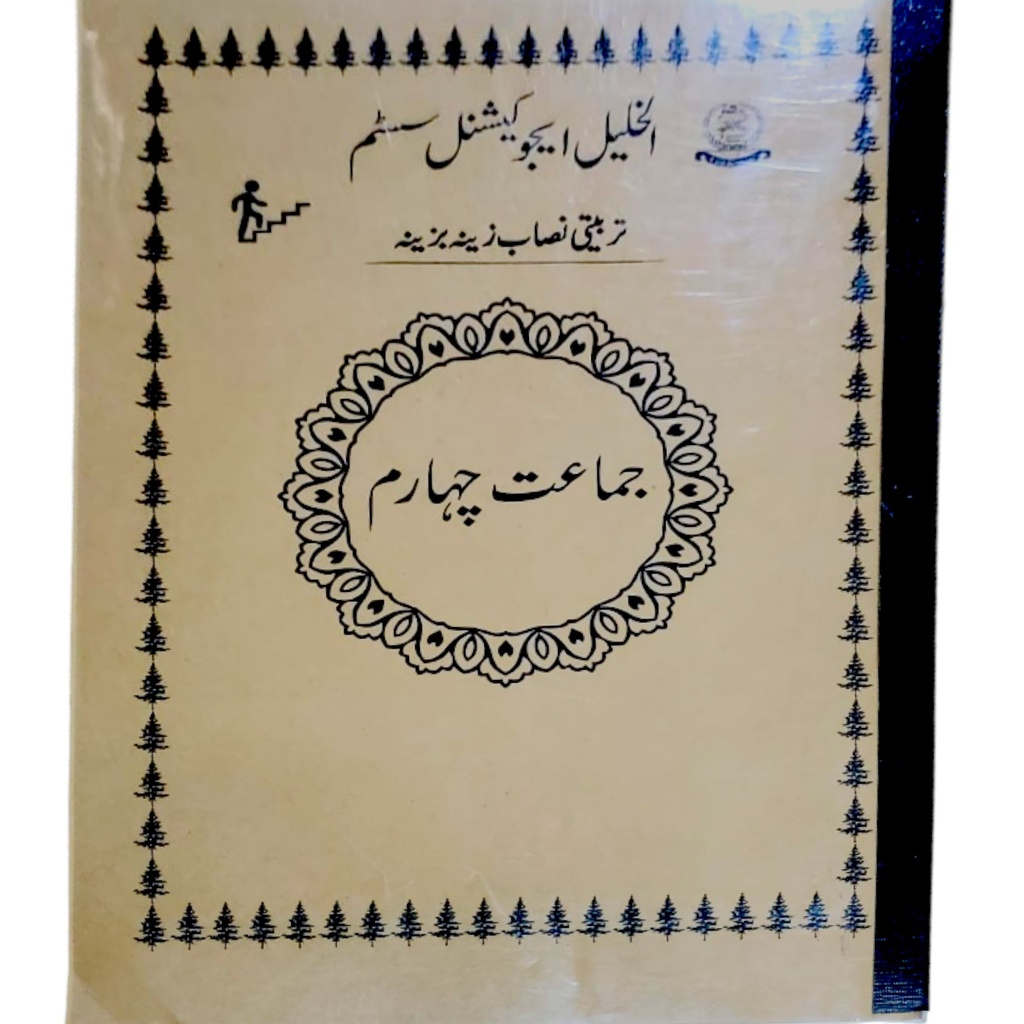 الخلیل ایجوکیشنل سسٹم
تربیتی نصاب زینہ بزینہ
جماعت چہارم